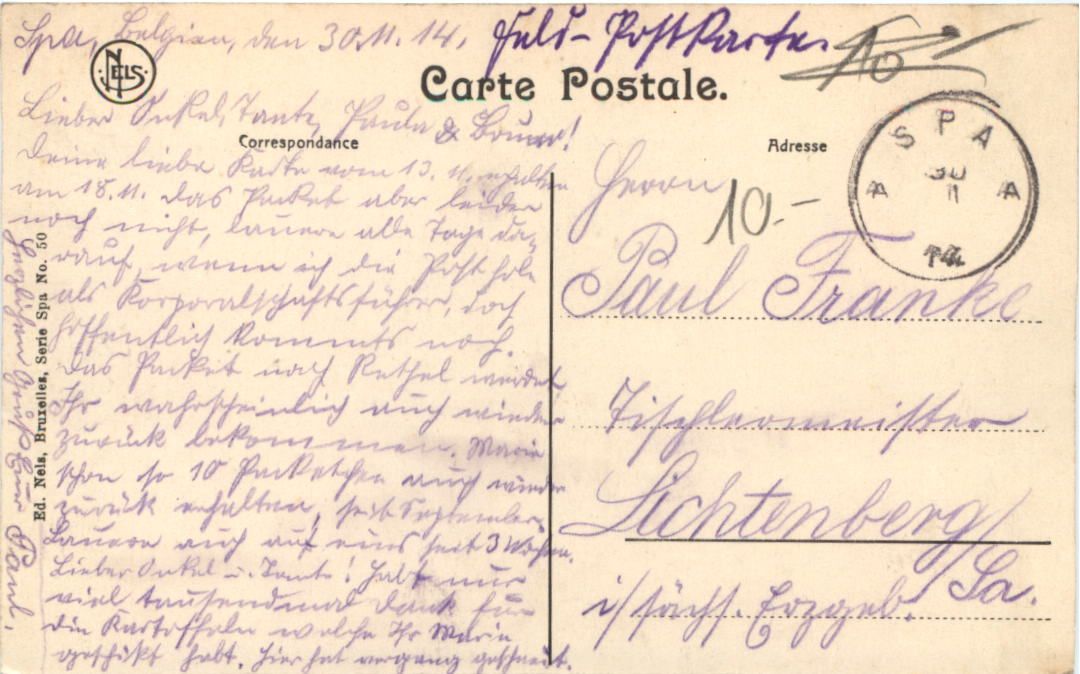 Spa, Belgien, den 30.11.14.
Feld-Postkarte.
10
NELS
Carte Postale.
Lieber Onkel, Tante, Paula & Bruno!
Correspondance
Deine liebe Karte vom 13.11. erhalten
am 18.11. das Packet aber leider
noch nicht, lauere alle Tage da-
rauf, wenn ich die Post hole
als Korporalschaftsführer, doch
hoffentlich kommts noch.
Das Packet nach Rethel werdet
Ihr wahrscheinlich auch wieder
zurück bekommen. Marie
schon so 10 Packetchen auch wieder
zurück erhalten, seit September.
Lauere auch auf eins seit 3 Wochen.
Lieber Onkel u. Tante! Habt nur
viel tausendmal Dank für
die Kartoffeln welche Ihr Marie
geschikt habt. Hier hat geschneit.
Herzlichen Gruß Euer Paul.
Ed. Nels, Bruxelles, Serie Spa No. 50
Adresse
SPA
30
11
14
A A
10.-
Herrn
Paul Franke
Tischlermeister
Lichtenberg/Sa.
i/ sächs. Erzgeb.